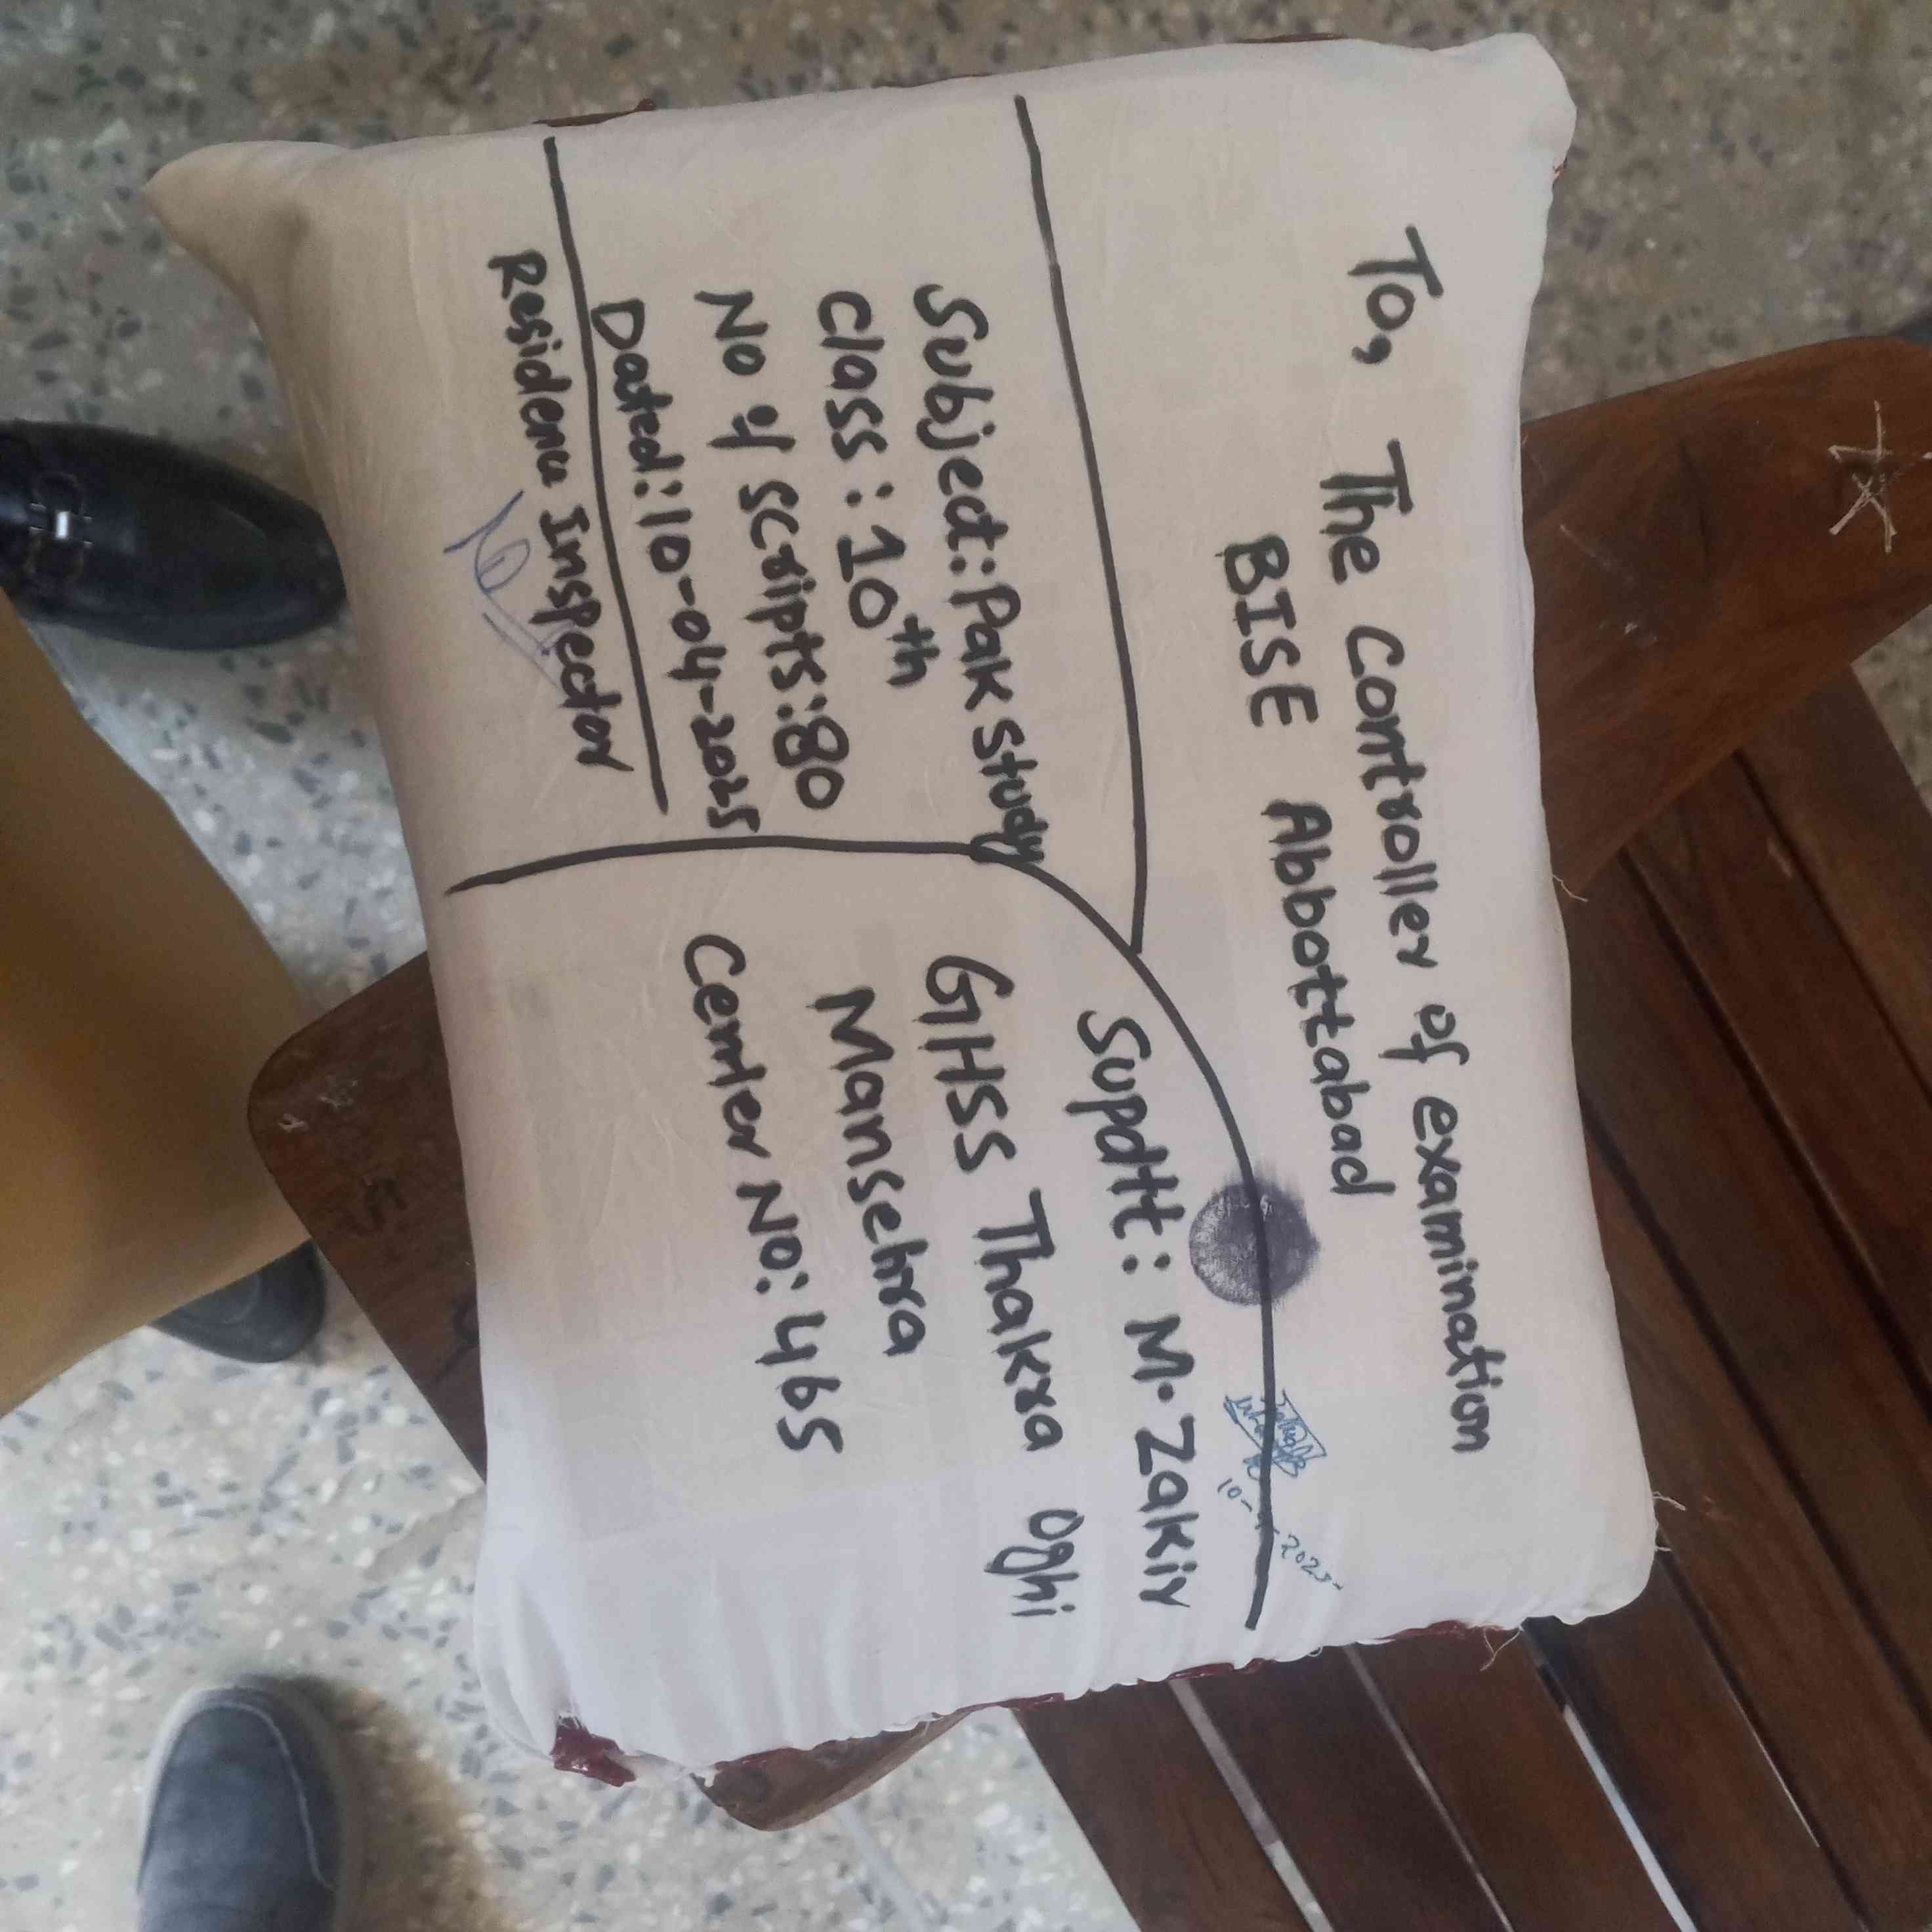 To, The Controller of examination
BISE Abbottabad
Subject: Pak study
Class: 10th
No of scripts: 80
Dated: 10-04-2025
Residenu Inspector
Supdtt: M. Zakiy
GHSS Thakra Oghi
Mansehra
Center No: 465